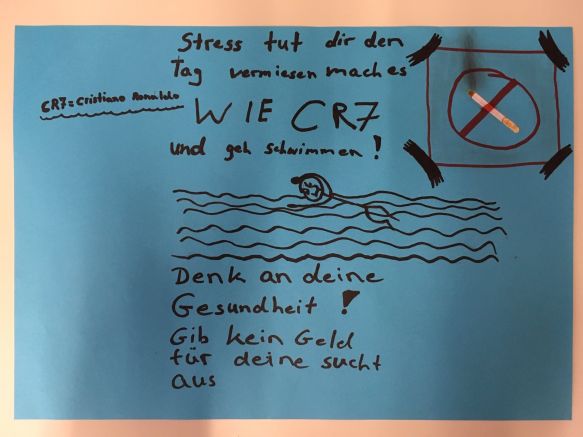 Stress tut dir den
Tag vermiesen mach es
CR7 = Cristiano Ronaldo
WIE CR7
und geh schwimmen!
Denk an deine
Gesundheit!
Gib kein Geld
für deine sucht
aus